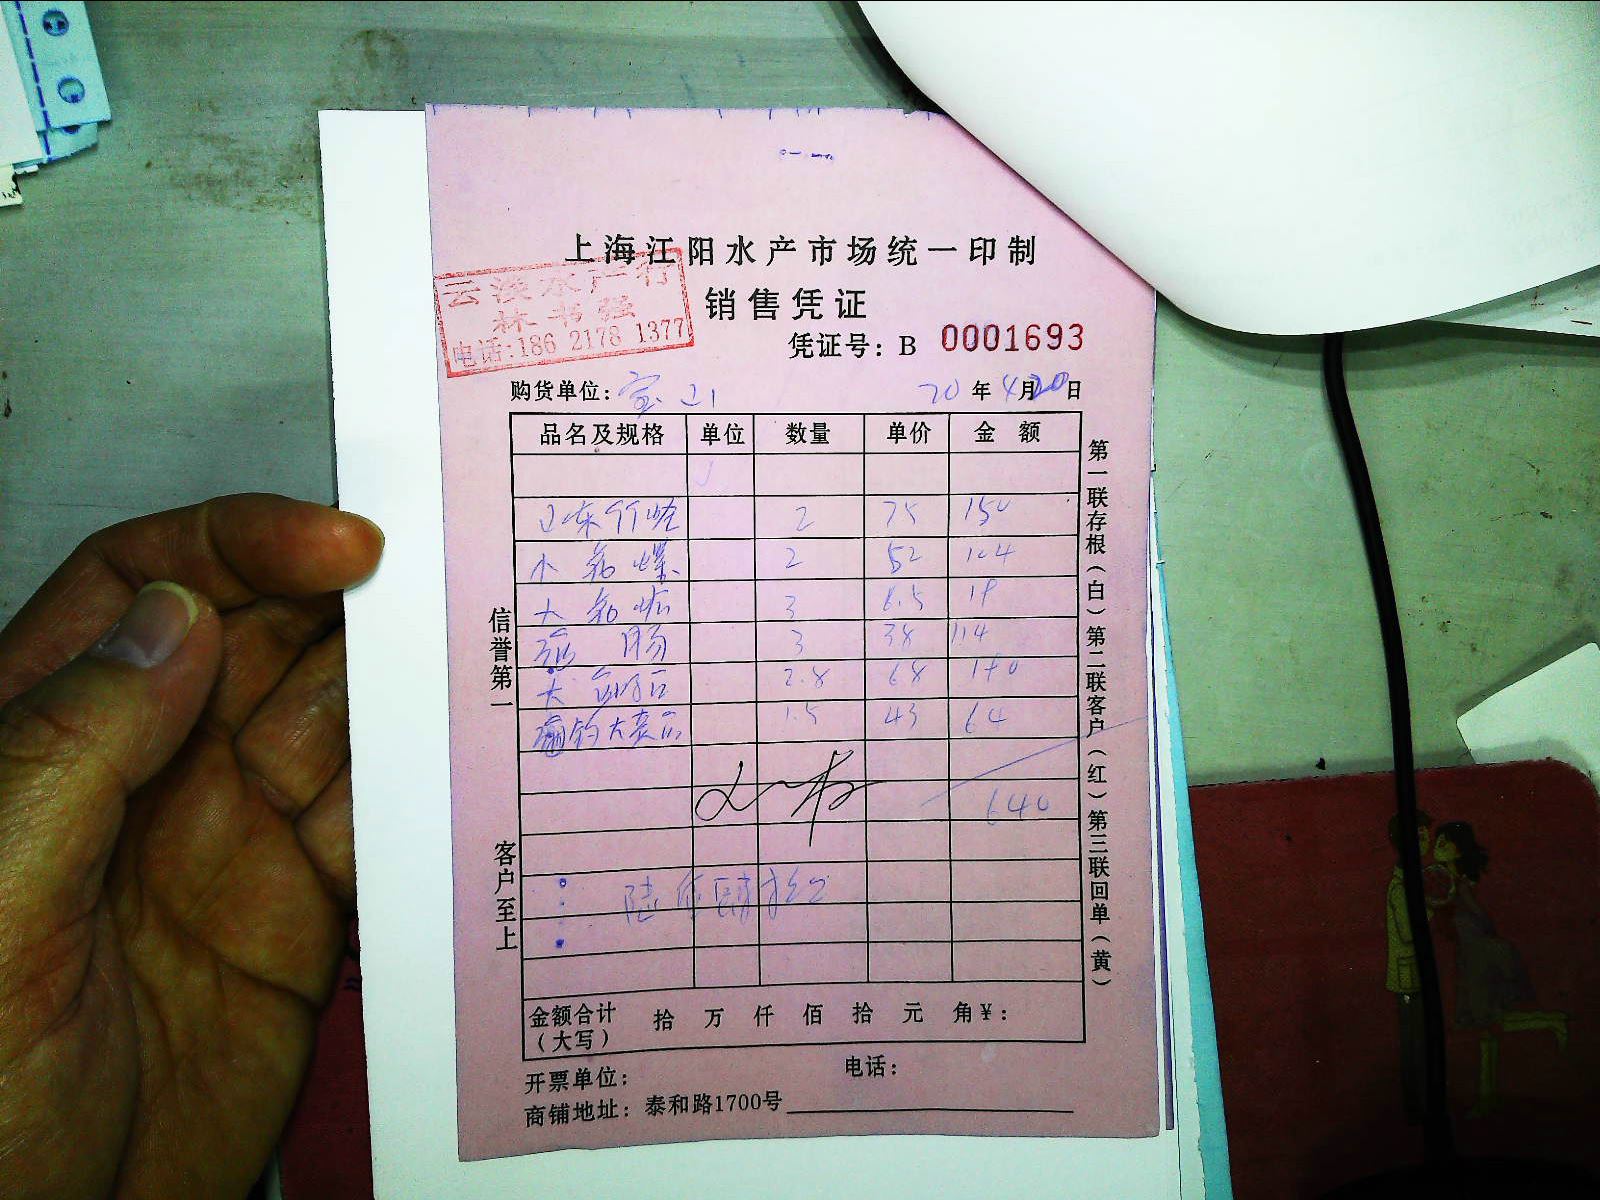 上海江阳水产市场统一印制
云溪水产行
林书强
电话:186 2178 1377
销售凭证
凭证号：B 0001693
购货单位：宝山 20年4月20日
品名及规格 单位 数量 单价 金额
山东竹蛏 2 75 150
小 2 52 104
大 3 6.5 19
肠 3 38 114
大 2.8 68 190
1.5 43 64
640
陆佰肆拾
金额合计 拾 万 仟 佰 拾 元 角￥：
（大写）
开票单位： 电话：
商铺地址：泰和路1700号
信誉第一
客户至上
第一联存根（白）第二联客户（红）第三联回单（黄）